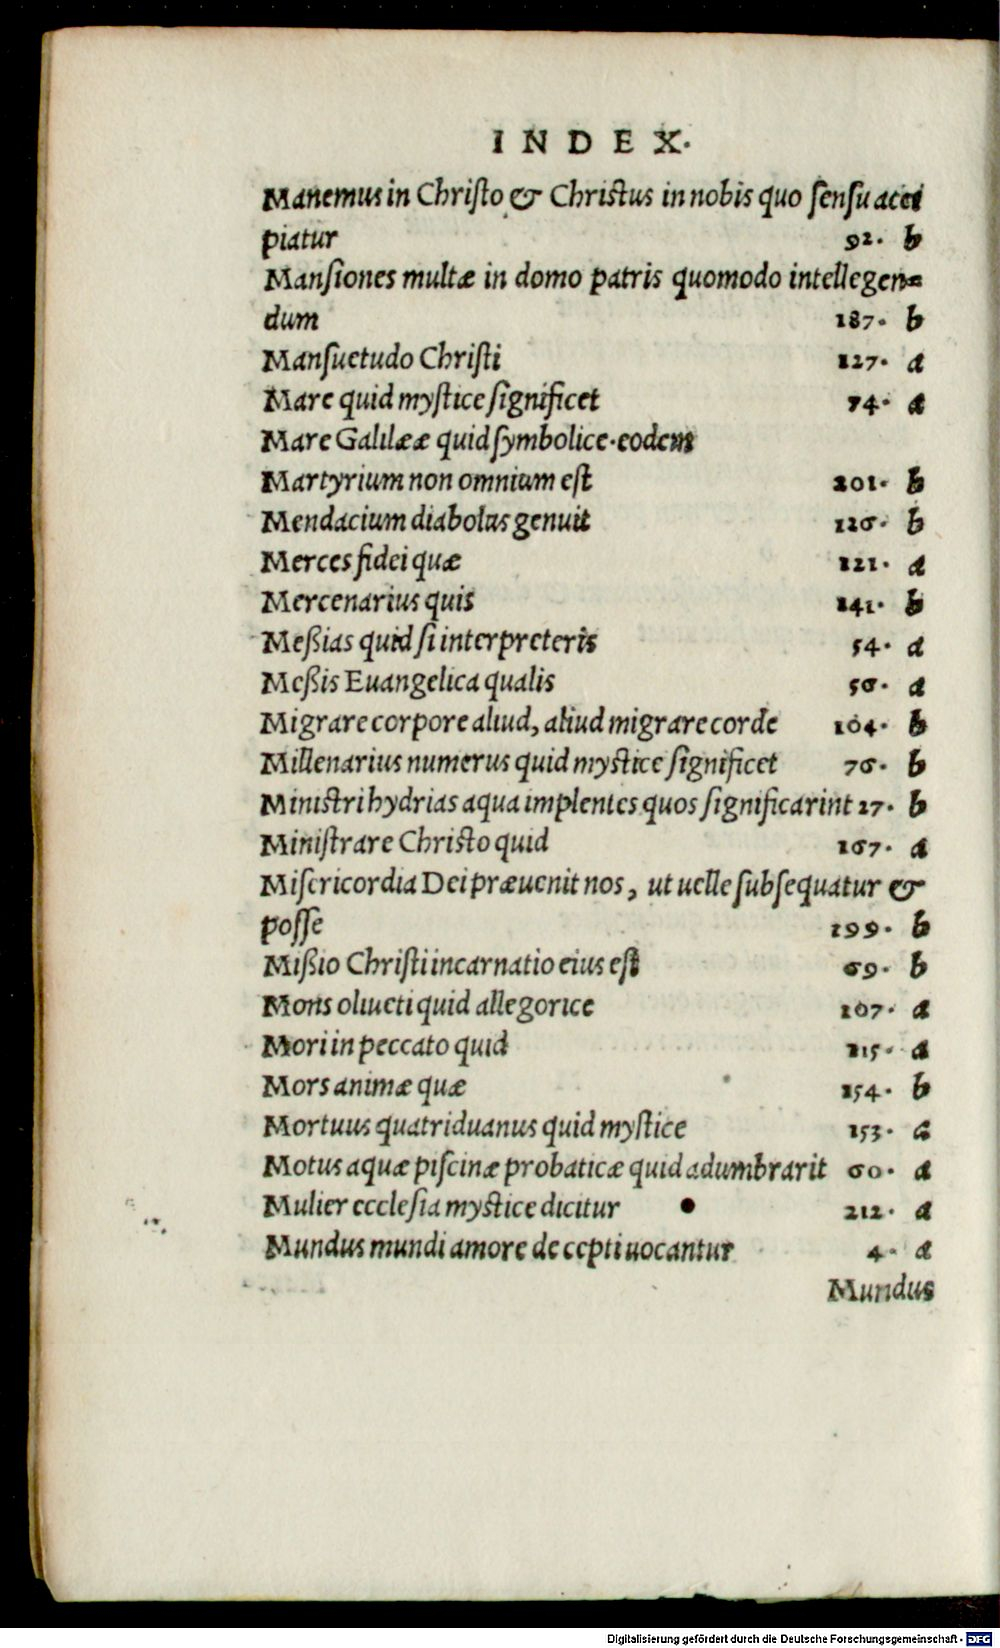 INDEX.
Manemus in Christo & Christus in nobis quo sensu acci
piatur 92. b
Mansiones multæ in domo patris quomodo intellegen=
dum 187. b
Mansuetudo Christi 127. a
Mare quid mystice significet 74. a
Mare Galilææ quid symbolice. eodem
Martyrium non omnium est 201. b
Mendacium diabolus genuit 126. b
Merces fidei quæ 121. a
Mercenarius quis 141. b
Meßias quid si interpreteris 54. a
Meßis Euangelica qualis 56. a
Migrare corpore aliud, aliud migrare corde 104. b
Millenarius numerus quid mystice significet 76. b
Ministri hydrias aqua implentes quos significarint 27. b
Ministrare Christo quid 167. a
Misericordia Dei præuenit nos, ut uelle subsequatur &
posse 199. b
Mißio Christi incarnatio eius est 69. b
Mons oliueti quid allegorice 107. a
Mori in peccato quid 115. a
Mors animæ quæ 154. b
Mortuus quatriduanus quid mystice 153. a
Motus aquæ piscinæ probaticæ quid adumbrarit 60. a
Mulier ecclesia mystice dicitur 212. a
Mundus mundi amore decepti uocantur 4. a
Mundus
Digitalisierung gefördert durch die Deutsche Forschungsgemeinschaft - DFG